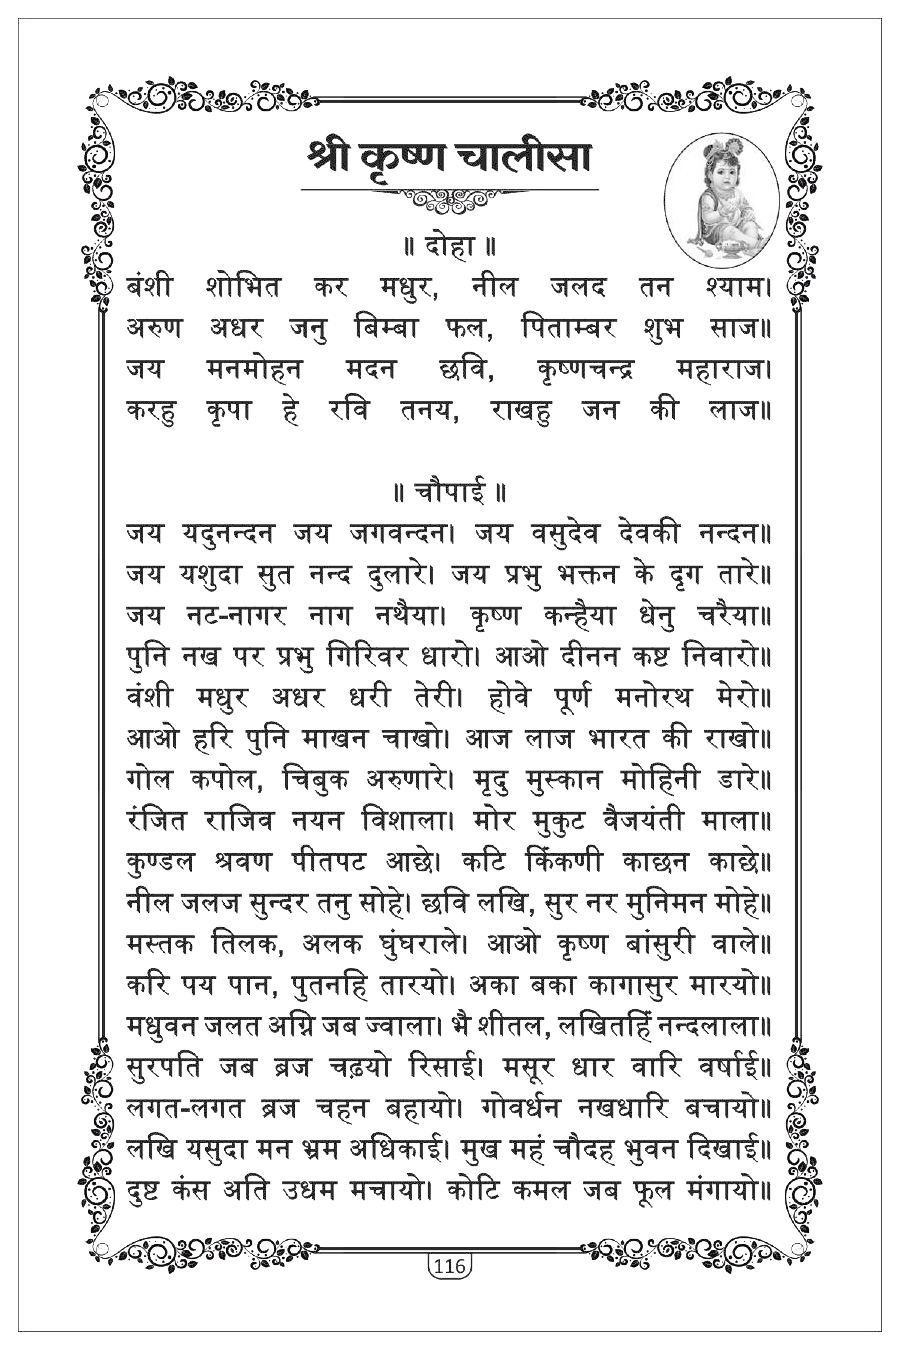 श्री कृष्ण चालीसा
॥ दोहा ॥
बंशी शोभित कर मधुर, नील जलद तन श्याम।
अरुण अधर जनु बिम्बा फल, पिताम्बर शुभ साज॥
जय मनमोहन मदन छवि, कृष्णचन्द्र महाराज।
करहु कृपा हे रवि तनय, राखहु जन की लाज॥
॥ चौपाई ॥
जय यदुनन्दन जय जगवन्दन। जय वसुदेव देवकी नन्दन॥
जय यशुदा सुत नन्द दुलारे। जय प्रभु भक्तन के दृग तारे॥
जय नट-नागर नाग नथैया। कृष्ण कन्हैया धेनु चरैया॥
पुनि नख पर प्रभु गिरिवर धारो। आओ दीनन कष्ट निवारो॥
वंशी मधुर अधर धरी तेरी। होवे पूर्ण मनोरथ मेरो॥
आओ हरि पुनि माखन चाखो। आज लाज भारत की राखो॥
गोल कपोल, चिबुक अरुणारे। मृदु मुस्कान मोहिनी डारे॥
रंजित राजिव नयन विशाला। मोर मुकुट वैजयंती माला॥
कुण्डल श्रवण पीतपट आछे। कटि किंकणी काछन काछे॥
नील जलज सुन्दर तनु सोहे। छवि लखि, सुर नर मुनिमन मोहे॥
मस्तक तिलक, अलक घुंघराले। आओ कृष्ण बांसुरी वाले॥
करि पय पान, पुतनहि तारयो। अका बका कागासुर मारयो॥
मधुवन जलत अग्नि जब ज्वाला। भै शीतल, लखितहिं नन्दलाला॥
सुरपति जब ब्रज चढ़यो रिसाई। मसूर धार वारि वर्षाई॥
लगत-लगत ब्रज चहन बहायो। गोवर्धन नखधारि बचायो॥
लखि यसुदा मन भ्रम अधिकाई। मुख महं चौदह भुवन दिखाई॥
दुष्ट कंस अति उधम मचायो। कोटि कमल जब फूल मंगायो॥
116